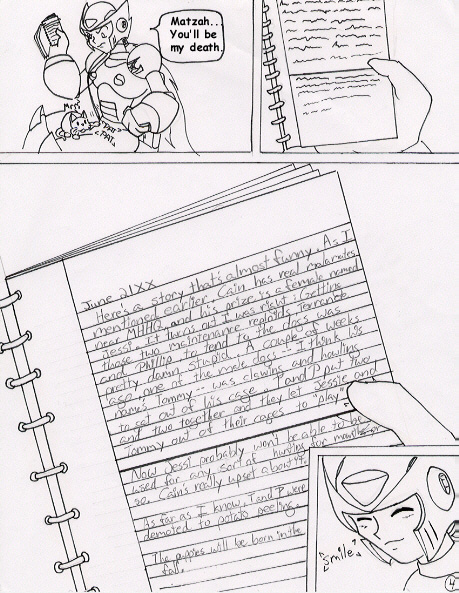 Matzah...
You'll be
my death.
Mrr?
PAT
PAT
June 21XX
Here's a story that's almost funny. As I
mentioned earlier, Cain has real malamutes
near MHHQ and his prize is a female named
Jessi. It turns out I was right: Getting
those two maintenance reploids Torrance
and Phillip to tend to the dogs was
pretty damn stupid. A couple of weeks
ago, one of the male dogs... I think is
names Tommy... was clawing and howling
to get out of his cage. T and P put two
and two together and they let Jessie and
Tommy out of their cages to "play."
Now Jessi probably won't be able to be
used for any sort of hunting for months or
so. Cain's really upset about it.
As far as I know, T and P were
demoted to potato peeling.
The puppies will be born in the
fall.
smile
4